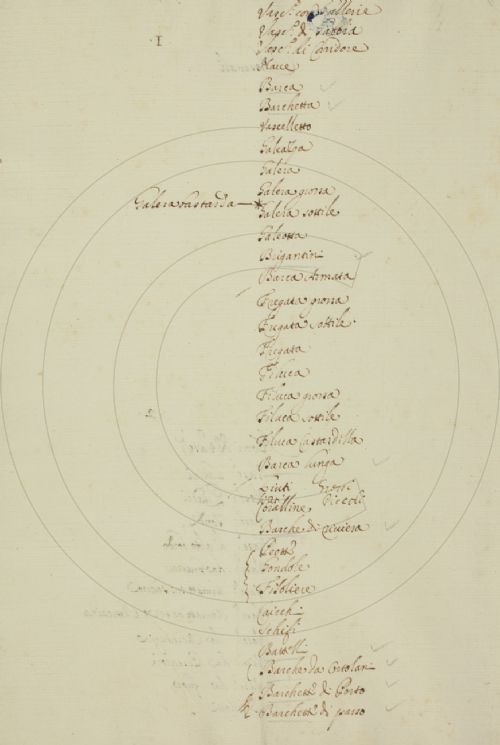 1
Vasc.º con
Vasc.º di
Vasc.º di Condore
Nave
Barca
Barchetta
Vascelletto
Galeazza
Galera
Galera grossa
Galera bastarda
Galera sottile
Galeotta
Brigantin
Barca Armata
Fregata grossa
Fregata sottile
Fregata
Filuca
Filuca grossa
Filuca sottile
Filuca bastardella
Barca lunga
Liuti Grossi
Coralline, Piccoli
Barche di riviera
Peotte
Gondole
Fisoliere
Caicchi
Schifi
Battelli
Barche da Ortolan
Barchette di Porto
Barchette di passo